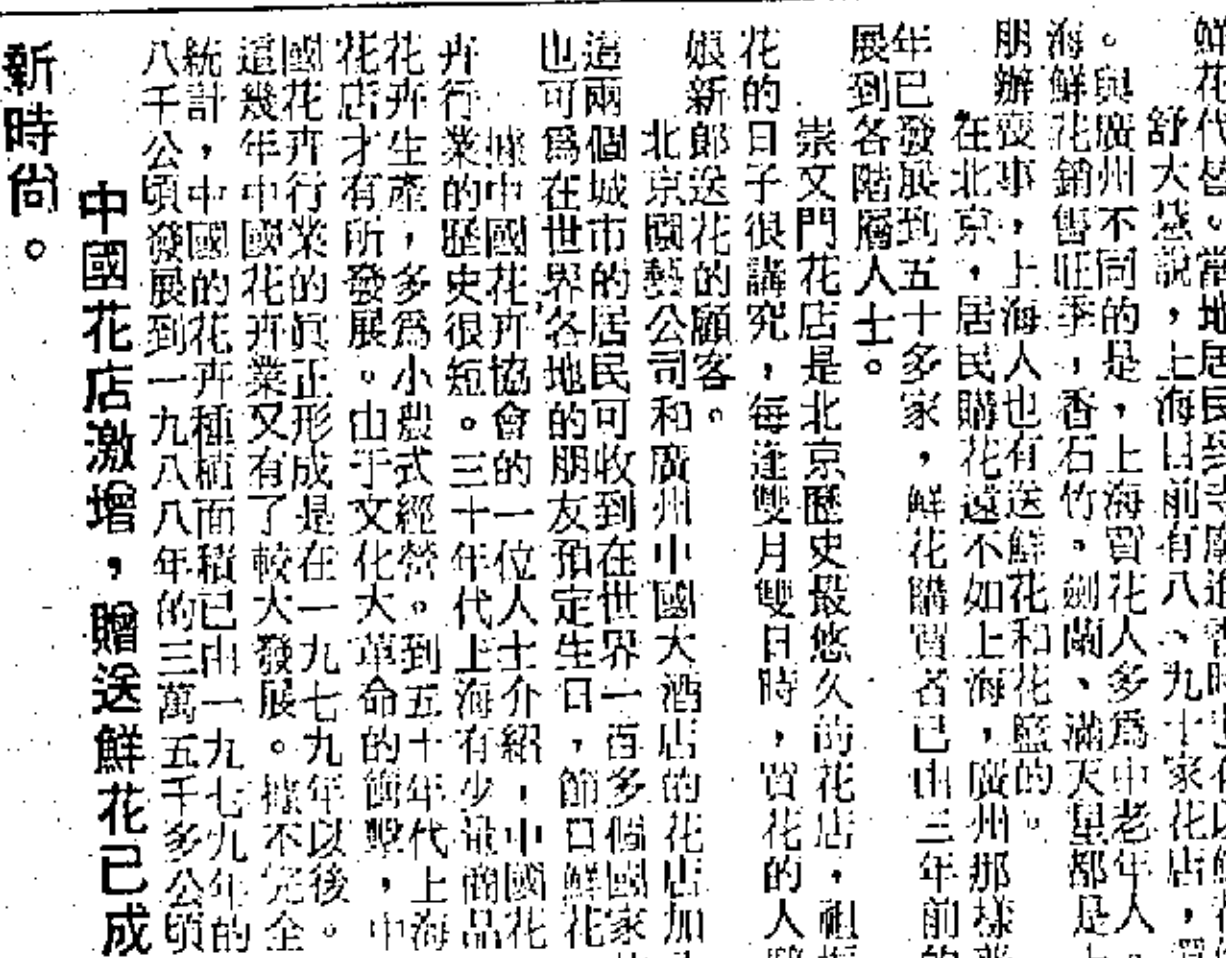 鮮花代替。當地居民到寺廟進香時
舒大慧說，上海目前有八、九十家花店，
。與廣州不同的是，上海買花人多爲中老年人。
海鮮花銷售旺季，香石竹。劍蘭、滿天星都是
朋辦喪事，上海人也有送鮮花和花籃的。
在北京，居民購花遠不如上海，廣州那樣
年已發展到五十多家，鮮花購買者已由三年前的
展到各階層人士。
崇文門花店是北京歷史最悠久的花店，祖
花的日子很講究，每逢雙月雙日時，買花的人
娘新郎送花的顧客。
北京園藝公司和廣州中國大酒店的花店加
這兩個城市的居民可收到在世界一百多個國家
也可爲在世界各地的朋友預定生日，節日鮮花
據中國花卉協會的一位人士介紹，中國花
卉行業的歷史很短。三十年代上海有少量商品
花卉生產，多爲小農式經營。到五十年代上海
花店才有所發展。由于文化大革命的衝擊，中
國花卉行業的眞正形成是在一九七九年以後。
這幾年中國花卉業又有了較大發展。據不完全
統計，中國的花卉種植面積已由一九七九年的
八千公頃發展到一九八八年的三萬五千多公頃
中國花店激增，贈送鮮花已成
新時尚。